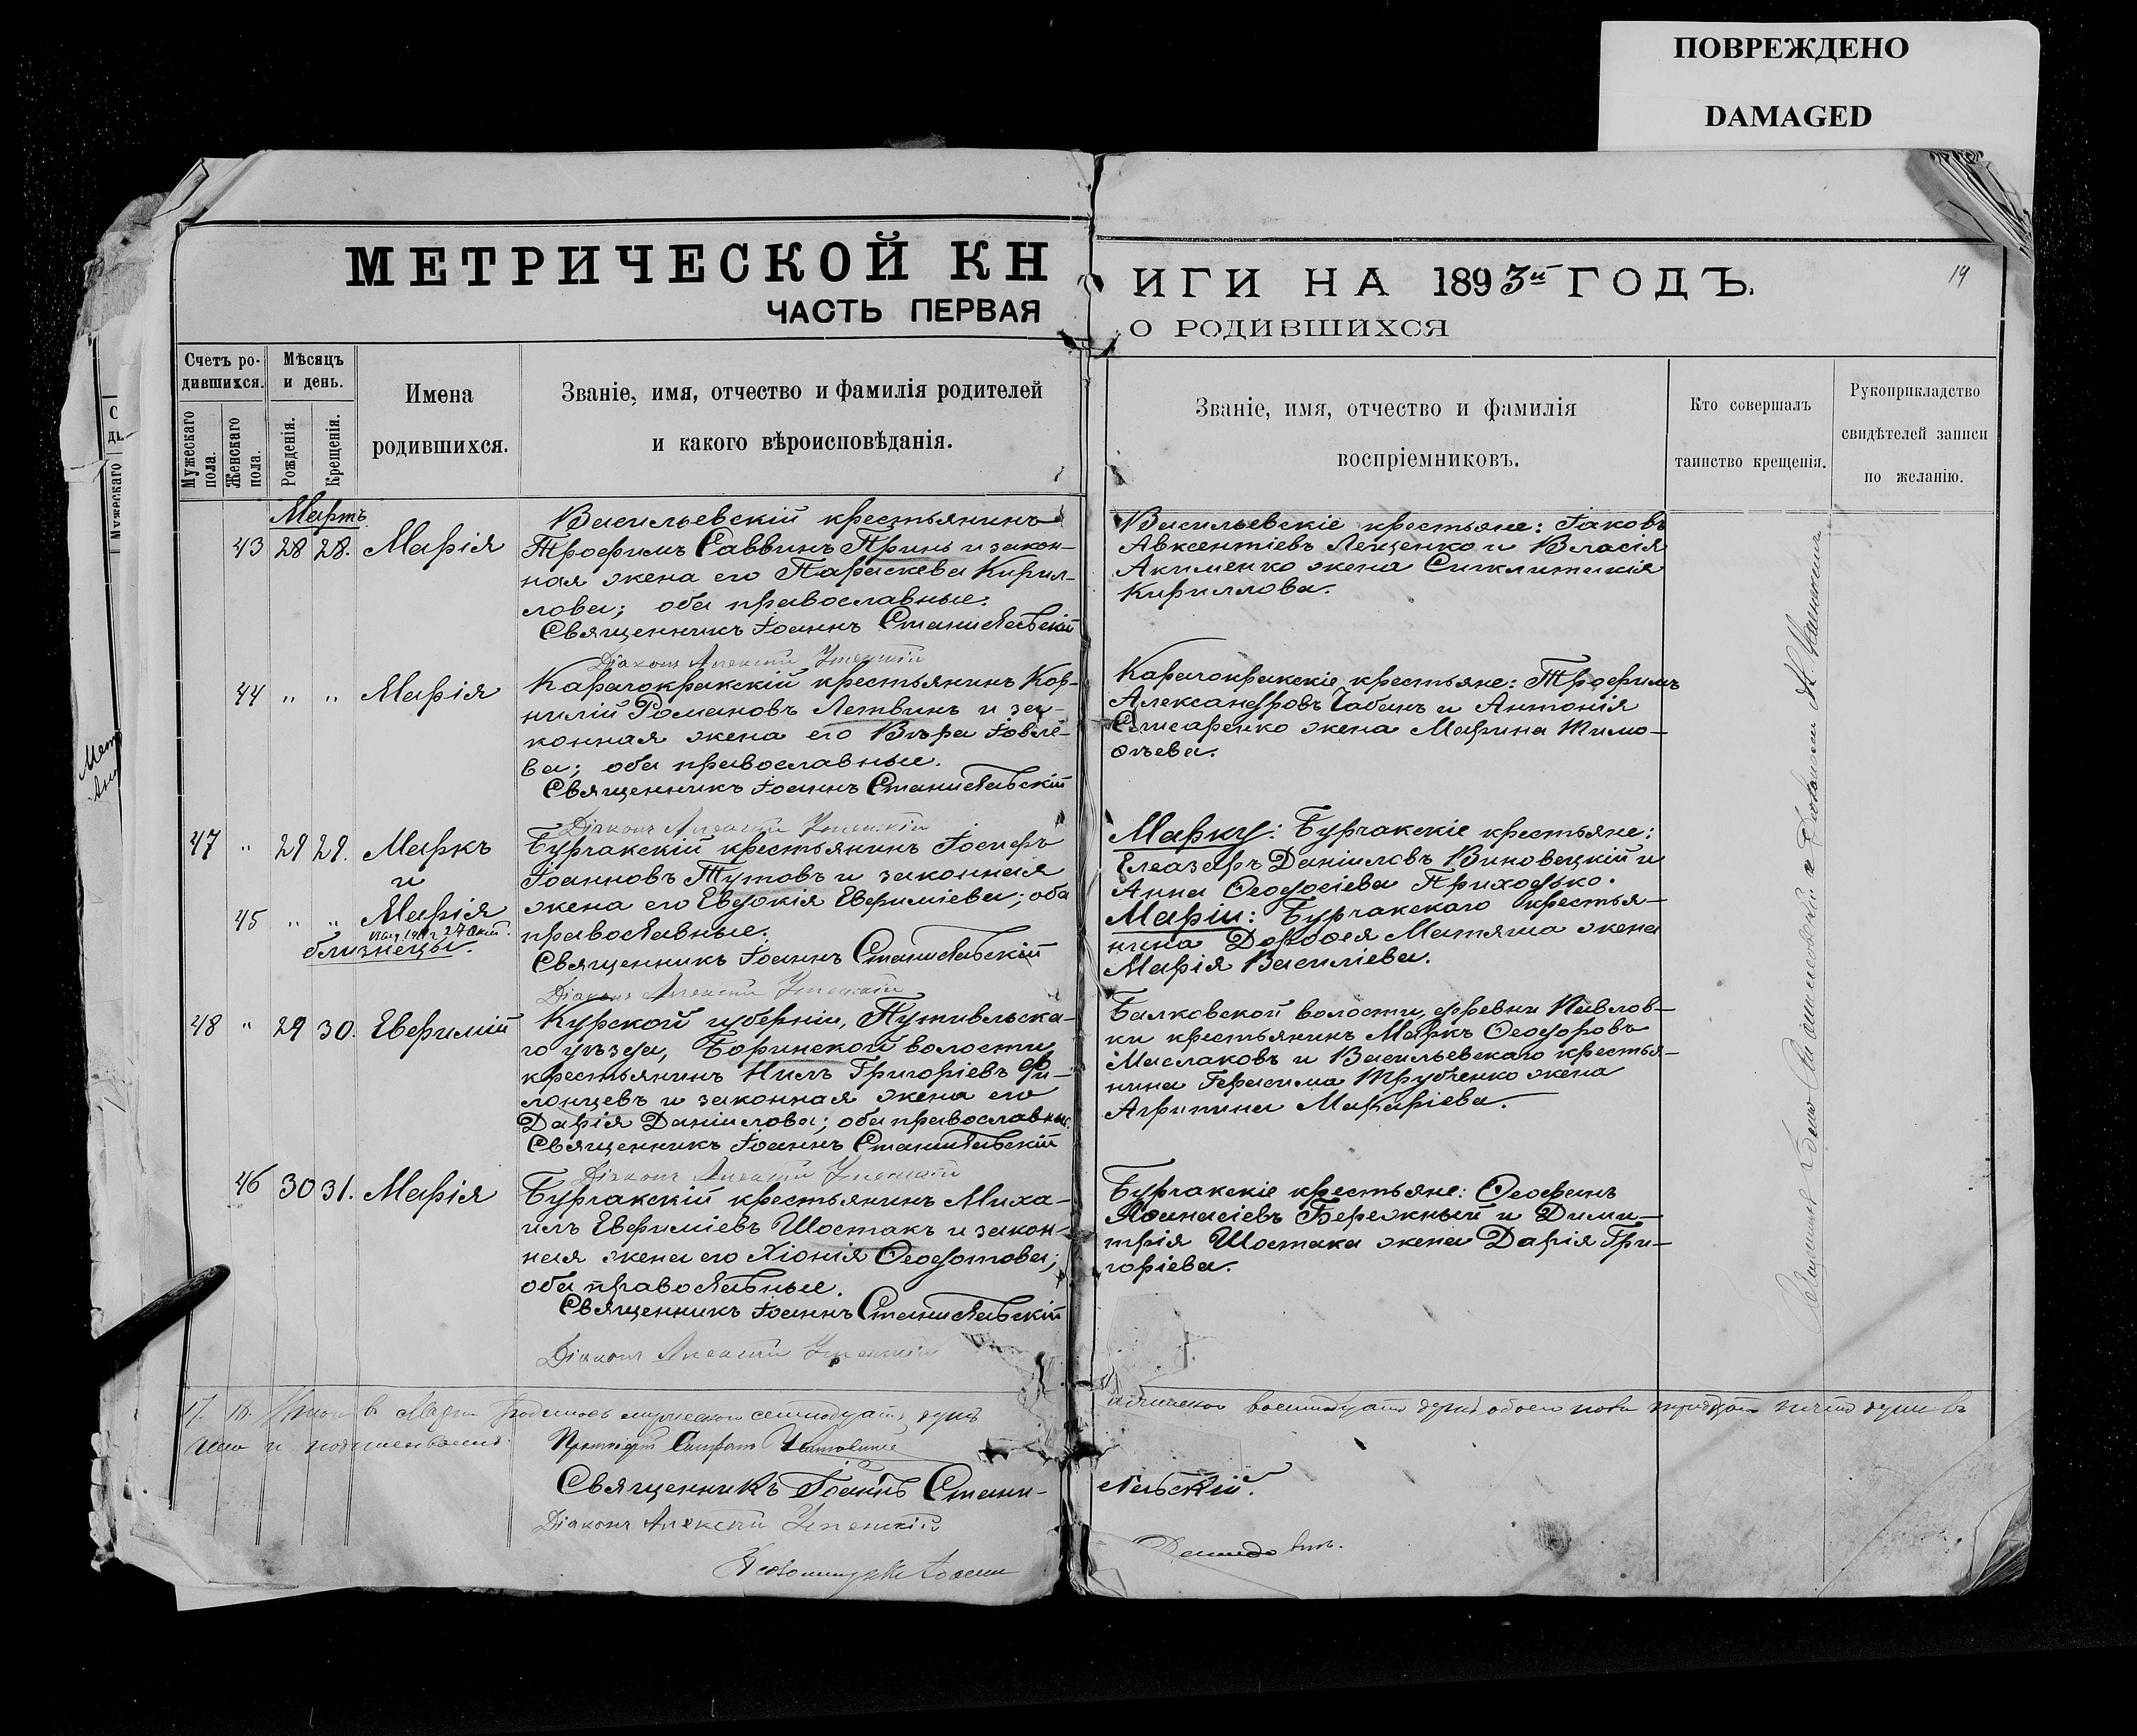 ПОВРЕЖДЕНО
DAMAGED
МЕТРИЧЕСКОЙ КН
ИГИ НА 1893й ГОДЪ.
19
ЧАСТЬ ПЕРВАЯ
О РОДИВШИХСЯ
Счетъ ро-
дившихся.
Мужескаго пола.
Женскаго пола.
Мѣсяцъ
и день.
Рожденія.
Крещенія.
Имена
родившихся.
Званіе, имя, отчество и фамилія родителей
и какого вѣроисповѣданія.
Званіе, имя, отчество и фамилія
воспріемниковъ.
Кто совершалъ
таинство крещенія.
Рукоприкладство
свидѣтелей записи
по желанію.
Мартъ
43 28 28. Марія
Васильевскій крестьянинъ
Трофимъ Саввинъ Принь и закон-
ная жена его Параскева Кирил-
лова; оба православные.
Священникъ Іоаннъ Станиславскій
Діаконъ Алексій Успенскій
Васильевскіе крестьяне: Іаковъ
Авксентіевъ Лещенко и Власія
Акименко жена Синклитикія
Кириллова.
44 " " Марія
Карачокракскій крестьянинъ Кор-
нилій Романовъ Летвинъ и за-
конная жена его Вѣра Іовле-
ва; оба православные.
Священникъ Іоаннъ Станиславскій
Діаконъ Алексій Успенскій
Карачокракскіе крестьяне: Трофимъ
Александровъ Чабанъ и Антонія
жена Марина Тимо-
ѳъева.
47 " 29 29. Маркъ
и
45 " " Марія
близнецы.
Бурчакскій крестьянинъ Іосифъ
Іоанновъ Тутовъ и законная
жена его Евдокія Евфиміева; оба
православные.
Священникъ Іоаннъ Станиславскій
Діаконъ Алексій Успенскій
Марку: Бурчакскіе крестьяне:
Елеазаръ Даніиловъ Виновецкій и
Анна Ѳеодосіева Приходько.
Маріи: Бурчакскаго крестья-
нина Дороѳея Матяша жена
Марія Василіева.
48 " 29 30. Евфимій
Курской губерніи, Путивльска-
го уѣзда, Боринской волости
крестьянинъ Нилъ Григоріевъ Фи-
лонцевъ и законная жена его
Дарія Даніилова; оба православные.
Священникъ Іоаннъ Станиславскій
Діаконъ Алексій Успенскій
Балковской волости, деревни Павлов-
ки крестьянинъ Маркъ Ѳеодоровъ
Маслаковъ и Васильевскаго крестья-
нина Герасима Трубченко жена
Агрипина Макаріева.
46 30 31. Марія
Бурчакскій крестьянинъ Миха-
илъ Евфиміевъ Шостакъ и закон-
ная жена его Хіонія Ѳеодотова;
оба православные.
Священникъ Іоаннъ Станиславскій
Діаконъ Алексій Успенскій
Бурчакскіе крестьяне: Ѳеофанъ
Аѳанасіевъ Бережный и Дими-
трія Шостака жена Дарія Гри-
горіева.
17. 18. Итого въ Мартѣ родилось мужескаго семнадцать душъ
женскаго восемнадцать душъ обоего пола тридцать пять душъ
Священникъ Іоаннъ Стани-
славскій.
Діаконъ Алексій Успенскій